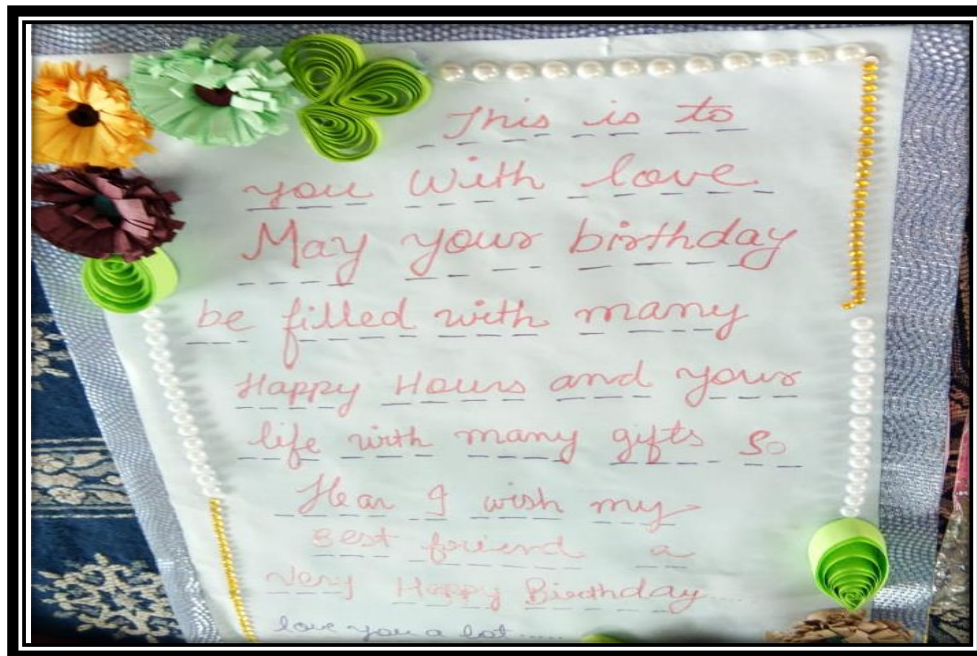 This is to
you With love.
May your birthday
be filled with many
Happy Hours and your
life with many gifts So
Hear I wish my
Best friend a
Very Happy Birthday.....
love you a lot.....